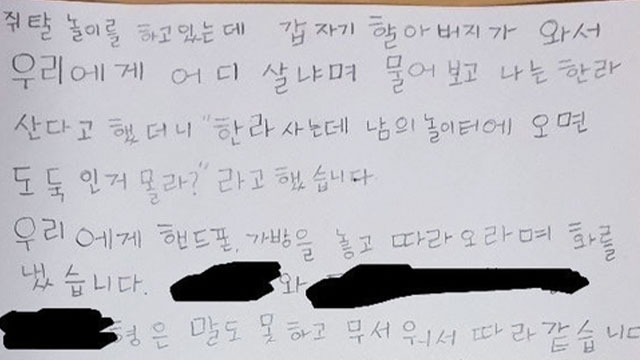 쥐탈 놀이를 하고있는데 갑자기 할아버지가 와서
우리에게 어디 살냐며 물어보고 나는 한라
산다고 했더니 "한라사는데 남의놀이터에 오면
도둑인거 몰라?"라고 했습니다.
우리에게 핸드폰, 가방을 놓고 따라오라며 화를
냈습니다. 와
형은 말도 못하고 무서워서 따라갔습니다